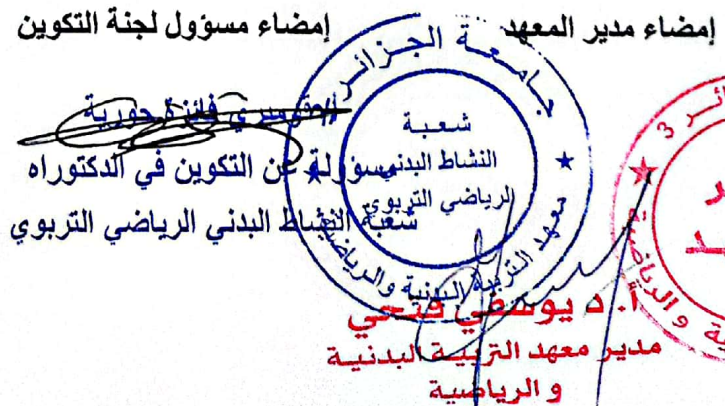 إمضاء مدير المعهد
إمضاء مسؤول لجنة التكوين
فائزة حورية
مسؤولة عن التكوين في الدكتوراه
شعبة النشاط البدني الرياضي التربوي
جامعة الجزائر
شعبة
النشاط البدني
الرياضي التربوي
معهد التربية البدنية والرياضية
أ.د يوسفي فتحي
مدير معهد التربية البدنية
و الرياضية
3